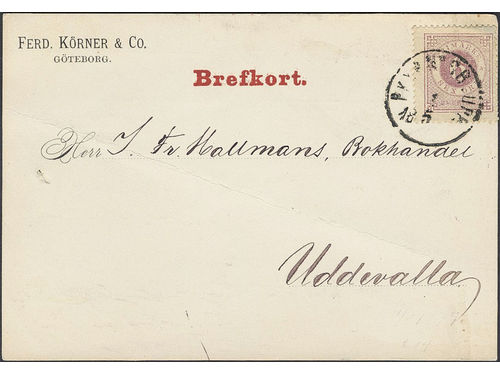 FERD. KÖRNER & CO.
GÖTEBORG.
Brefkort.
Herr J. Fr. Hallmans, Bokhandel
Uddevalla